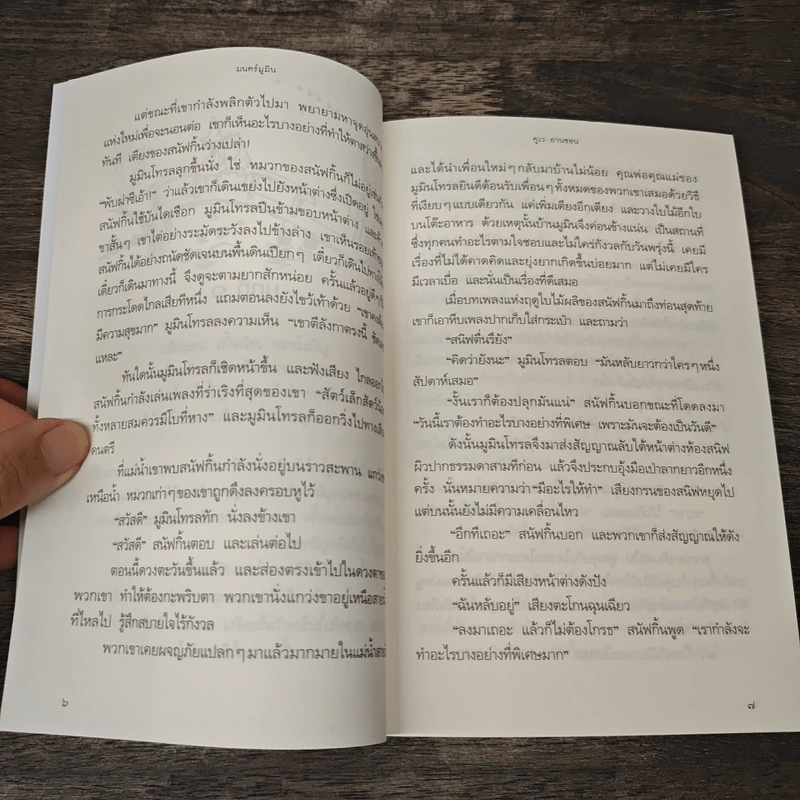 มนตร์มูมิน
แต่ขณะที่เขากำลังพลิกตัวไปมา พยายามหาจุดอุ่นสบาย
แห่งใหม่เพื่อจะนอนต่อ เขาก็เห็นอะไรบางอย่างที่ทำให้ตาสว่างขึ้น
ทันที เตียงของสนัฟกิ้นว่างเปล่า!
มูมินโทรลลุกขึ้นนั่ง ใช่ หมวกของสนัฟกิ้นก็ไม่อยู่
“พับผ่าซีเอ้า!” ว่าแล้วเขาก็เดินเขย่งไปยังหน้าต่างซึ่งเปิดอยู่
สนัฟกิ้นใช้บันไดเชือก มูมินโทรลปีนข้ามขอบหน้าต่าง
ขาสั้นๆ เขาไต่อย่างระมัดระวังลงไปข้างล่าง เขาเห็นรอยเท้า
สนัฟกิ้นได้อย่างถนัดชัดเจนบนพื้นดินเปียกๆ เดี๋ยวก็เดินไปทาง
เดี๋ยวก็เดินมาทางนี้ จึงดูจะตามยากสักหน่อย ครั้นแล้วอยู่ดีๆ
การกระโดดไกลเสียทีหนึ่ง แถมตอนลงยังไขว้เท้าด้วย
มีความสุขมาก” มูมินโทรลลงความเห็น “เขาตีลังกาตรงนี้
แหละ”
ทันใดนั้นมูมินโทรลก็เชิดหน้าขึ้น และฟังเสียง ไกลออกไป
สนัฟกิ้นกำลังเล่นเพลงที่ร่าเริงที่สุดของเขา “สัตว์เล็กสัตว์น้อย
ทั้งหลายสมควรมีโบที่หาง” และมูมินโทรลก็ออกวิ่งไปทางเสียง
ดนตรี
ที่แม่น้ำเขาพบสนัฟกิ้นกำลังนั่งอยู่บนราวสะพาน แกว่งขา
เหนือน้ำ หมวกเก่าๆ ของเขาถูกดึงลงครอบหูไว้
“สวัสดี” มูมินโทรลทัก นั่งลงข้างเขา
“สวัสดี” สนัฟกิ้นตอบ และเล่นต่อไป
ตอนนี้ดวงตะวันขึ้นแล้ว และส่องตรงเข้าไปในดวงตาของ
พวกเขา ทำให้ต้องกะพริบตา พวกเขานั่งแกว่งขาอยู่เหนือสายน้ำ
ที่ไหลไป รู้สึกสบายใจไร้กังวล
พวกเขาเคยผจญภัยแปลกๆ มาแล้วมากมายในแม่น้ำสายนี้
๖
ตูเว ยานซอน
และได้นำเพื่อนใหม่ๆ กลับมาบ้านไม่น้อย คุณพ่อคุณแม่ของ
มูมินโทรลยินดีต้อนรับเพื่อนๆ ทั้งหมดของพวกเขาเสมอด้วยวิธี
ที่เงียบๆ แบบเดียวกัน แค่เพิ่มเตียงอีกเตียง และวางใบไม้อีกใบ
บนโต๊ะอาหาร ด้วยเหตุนั้นบ้านมูมินจึงค่อนข้างแน่น เป็นสถานที่
ซึ่งทุกคนทำอะไรตามใจชอบและไม่ใคร่กังวลกับวันพรุ่งนี้ เคยมี
เรื่องที่ไม่ได้คาดคิดและยุ่งยากเกิดขึ้นบ่อยมาก แต่ไม่เคยมีใคร
มีเวลาเบื่อ และนั่นเป็นเรื่องที่ดีเสมอ
เมื่อบทเพลงแห่งฤดูใบไม้ผลิของสนัฟกิ้นมาถึงท่อนสุดท้าย
เขาก็เอาหีบเพลงปากเก็บใส่กระเป๋า และถามว่า
“สนิฟตื่นรึยัง”
“คิดว่ายังนะ” มูมินโทรลตอบ “มันหลับยาวกว่าใครๆ หนึ่ง
สัปดาห์เสมอ”
“งั้นเราก็ต้องปลุกมันแน่” สนัฟกิ้นบอกขณะที่โดดลงมา
“วันนี้เราต้องทำอะไรบางอย่างที่พิเศษ เพราะมันจะต้องเป็นวันดี”
ดังนั้นมูมินโทรลจึงมาส่งสัญญาณลับใต้หน้าต่างห้องสนิฟ
ผิวปากธรรมดาสามทีก่อน แล้วจึงประกบอุ้งมือเป่าลากยาวอีกหนึ่ง
ครั้ง นั่นหมายความว่า “มีอะไรให้ทำ” เสียงกรนของสนิฟหยุดไป
แต่บนนั้นยังไม่มีความเคลื่อนไหว
“อีกทีเถอะ” สนัฟกิ้นบอก และพวกเขาก็ส่งสัญญาณให้ดัง
ยิ่งขึ้นอีก
ครั้นแล้วก็มีเสียงหน้าต่างดังปัง
“ฉันหลับอยู่” เสียงตะโกนฉุนเฉียว
“ลงมาเถอะ แล้วก็ไม่ต้องโกรธ” สนัฟกิ้นพูด “เรากำลังจะ
ทำอะไรบางอย่างที่พิเศษมาก”
๗